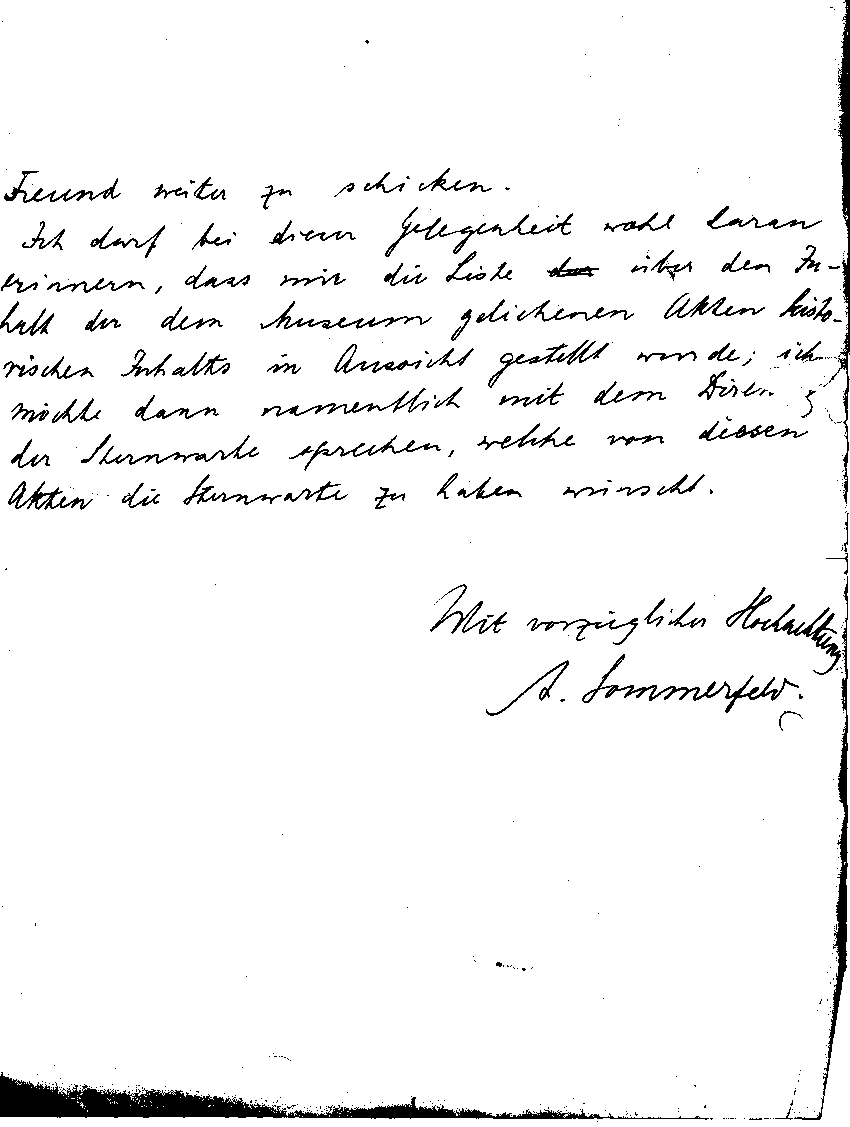 Freund weiter zu schicken.
Ich darf bei dieser Gelegenheit wohl daran
erinnern, dass mir die Liste der über den In-
halt der dem Museum geliehenen Akten histo-
rischen Inhalts in Aussicht gestellt wurde; ich
möchte dann namentlich mit dem
der Sternwarte sprechen, welche von diesen
Akten die Sternwarte zu haben wünscht.
Mit vorzüglicher Hochachtung
A. Sommerfeld.